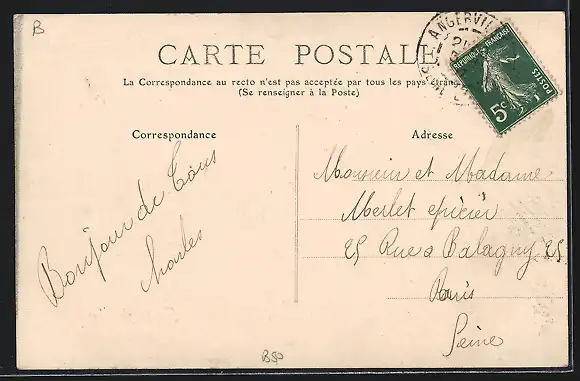 B
CARTE POSTALE
La Correspondance au recto n'est pas acceptée par tous les pays étrang
(Se renseigner à la Poste)
ANGERVIL
REPUBLIQUE FRANÇAISE
POSTES
5c
Correspondance
Adresse
Bonjour de Tous
Charles
Monsieur et Madame
Merlet epicier
25 Rue Balagny 25
Paris
Seine
B50